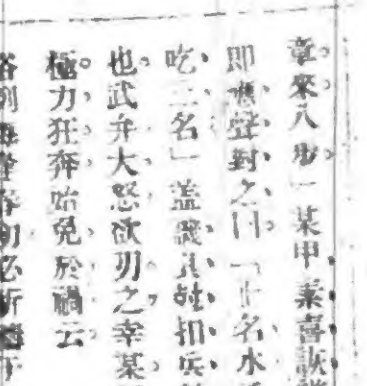 章來八步」某甲素喜詼
即應聲對之曰「十名水
吃二名」蓋譏其尅扣兵
也武弁大怒欲刃之幸某
極力狂奔始免於禍云